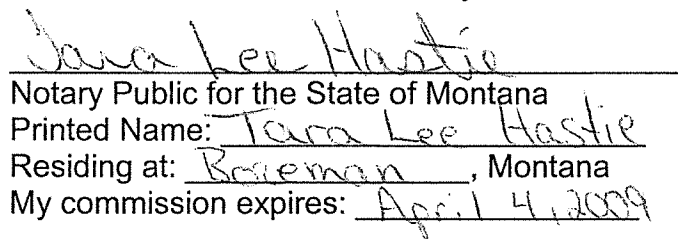 Tara Lee Hastie
Notary Public for the State of Montana
Printed Name: Tara Lee Hastie
Residing at: Bozeman, Montana
My commission expires: April 4, 2009